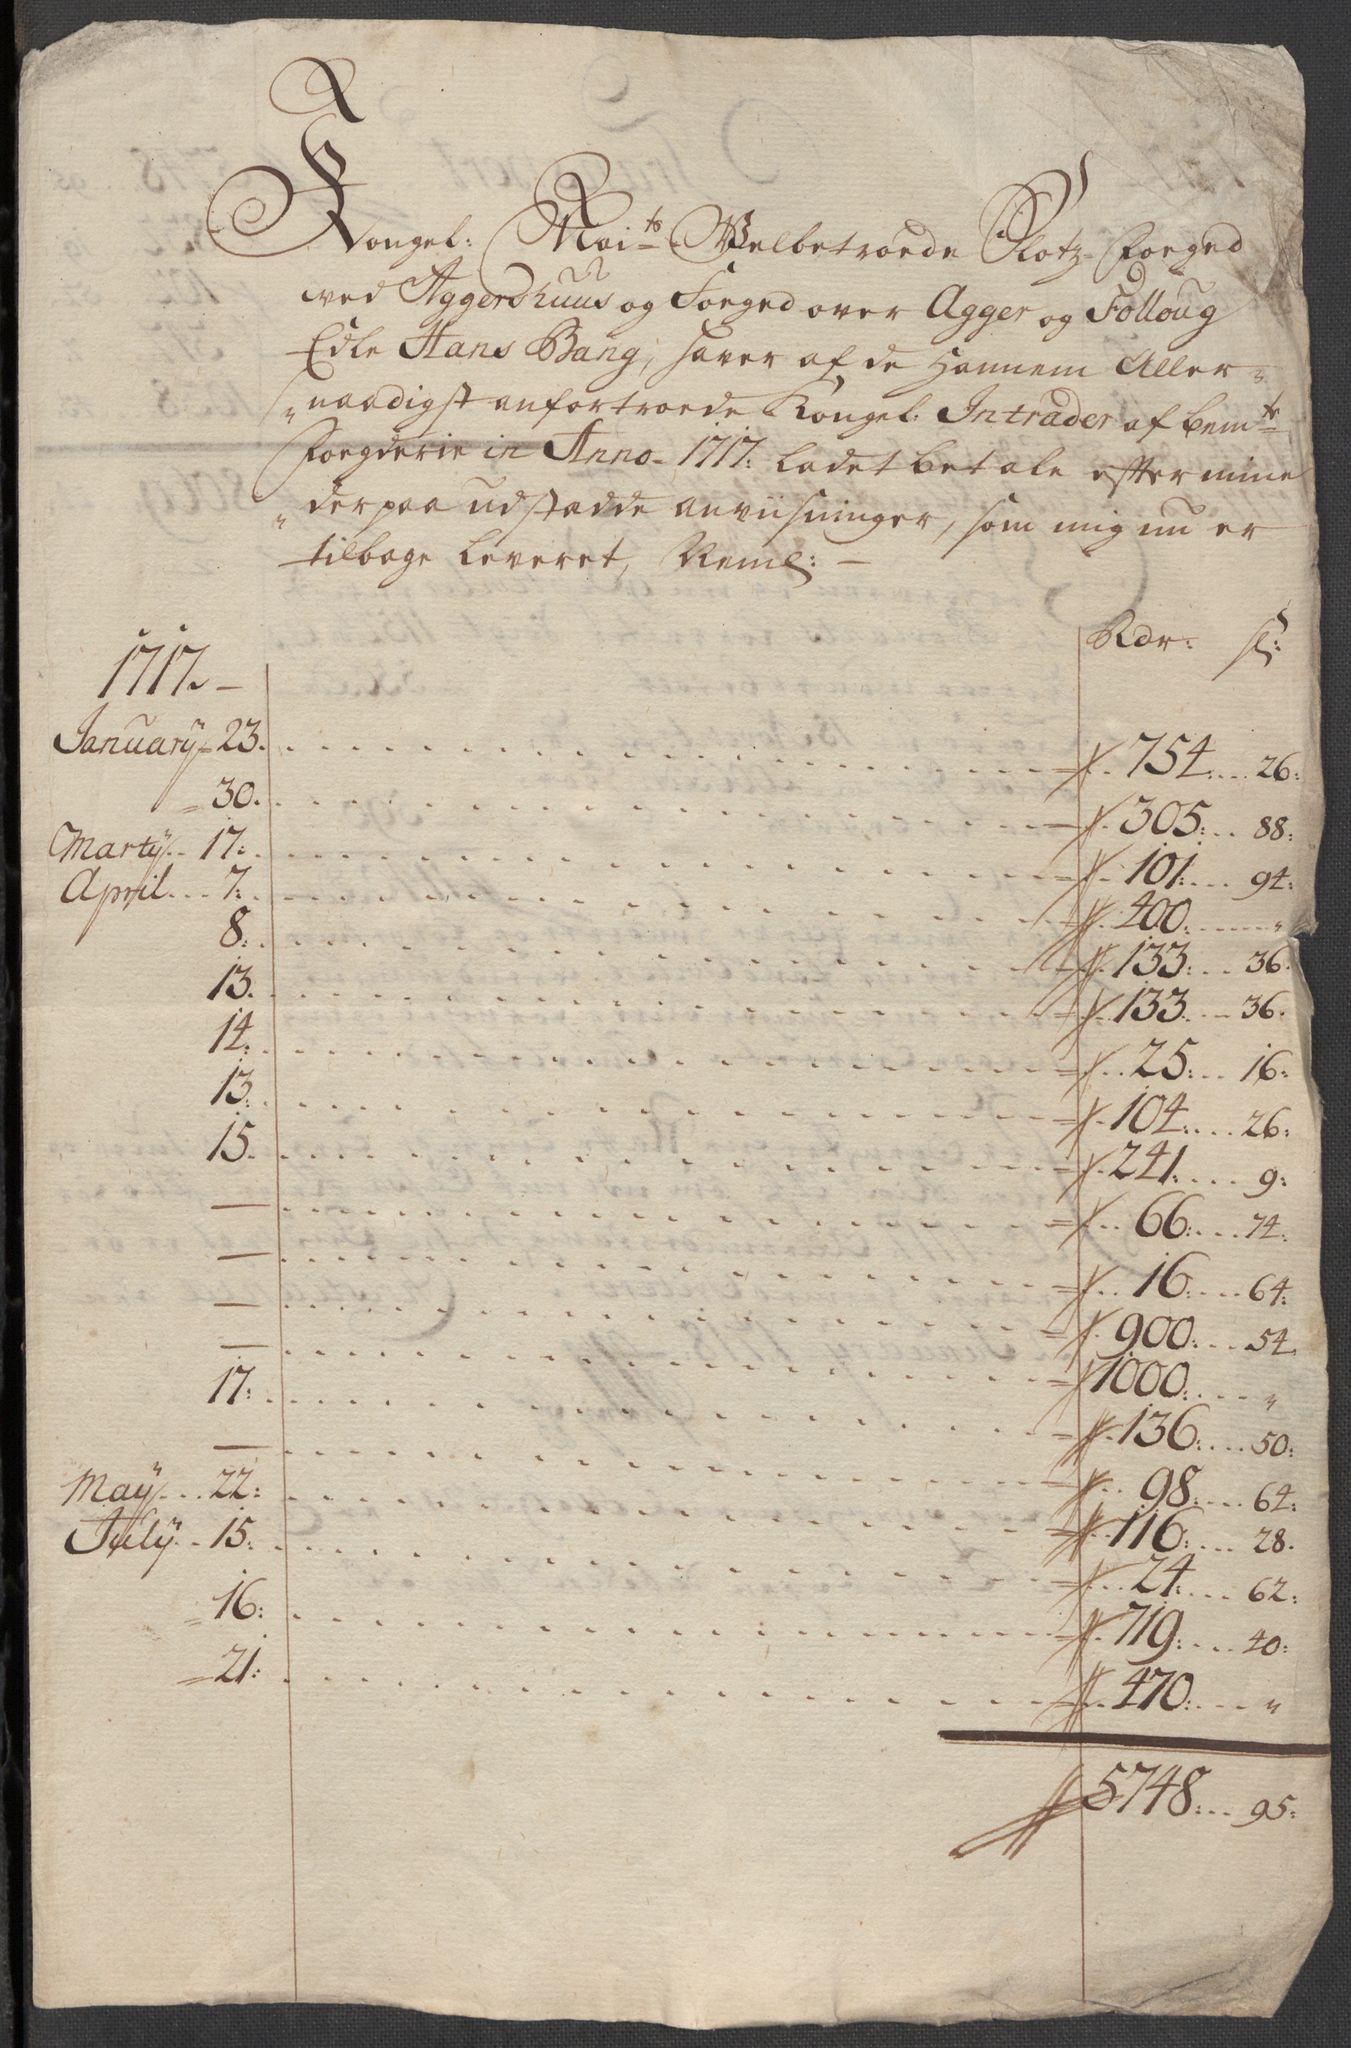 Kongel: Mai:ts Welbetroede Slotz-Foeged
ved Aggershuus og Foeged over Agger og Folloug
Edle Hans Bang, haver af de Hannem Aller-
naadigst anfortroede Kongel: Intrader af bem:te
Foegderie in Anno. 1717: ladet betale efter mine
derpaa udstædde anviisninger, som mig nu er
tilbage leveret, Neml: —
Rdr: ſl:
1717. —
January 23. 754: 26:
30. 305: 88:
Marty 17: 101: 94:
April 7: 400: "
8: 133: 36.
13. 133. 36.
14: 25: 16:
13: 104: 26:
15. 241: 9:
— 66: 74:
— 16: 64:
— 900: 54.
— 1000: "
17: 136: 50:
— 98: 64:
May 22: 116: 28.
July 15: 24: 62:
16: 719: 40:
21: 470: "
5748: 95: